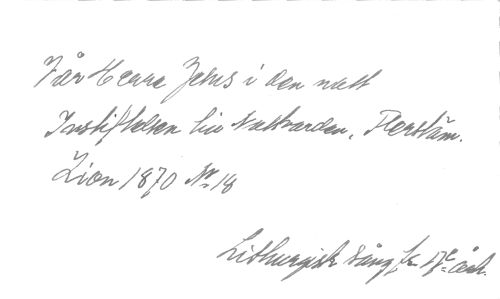 Vår Herre Jesus i den natt
Instiftelsen till Nattvarden. Flerstäm.
Zion 1870 № 18
Lithurgisk sång fr. 17e årh.